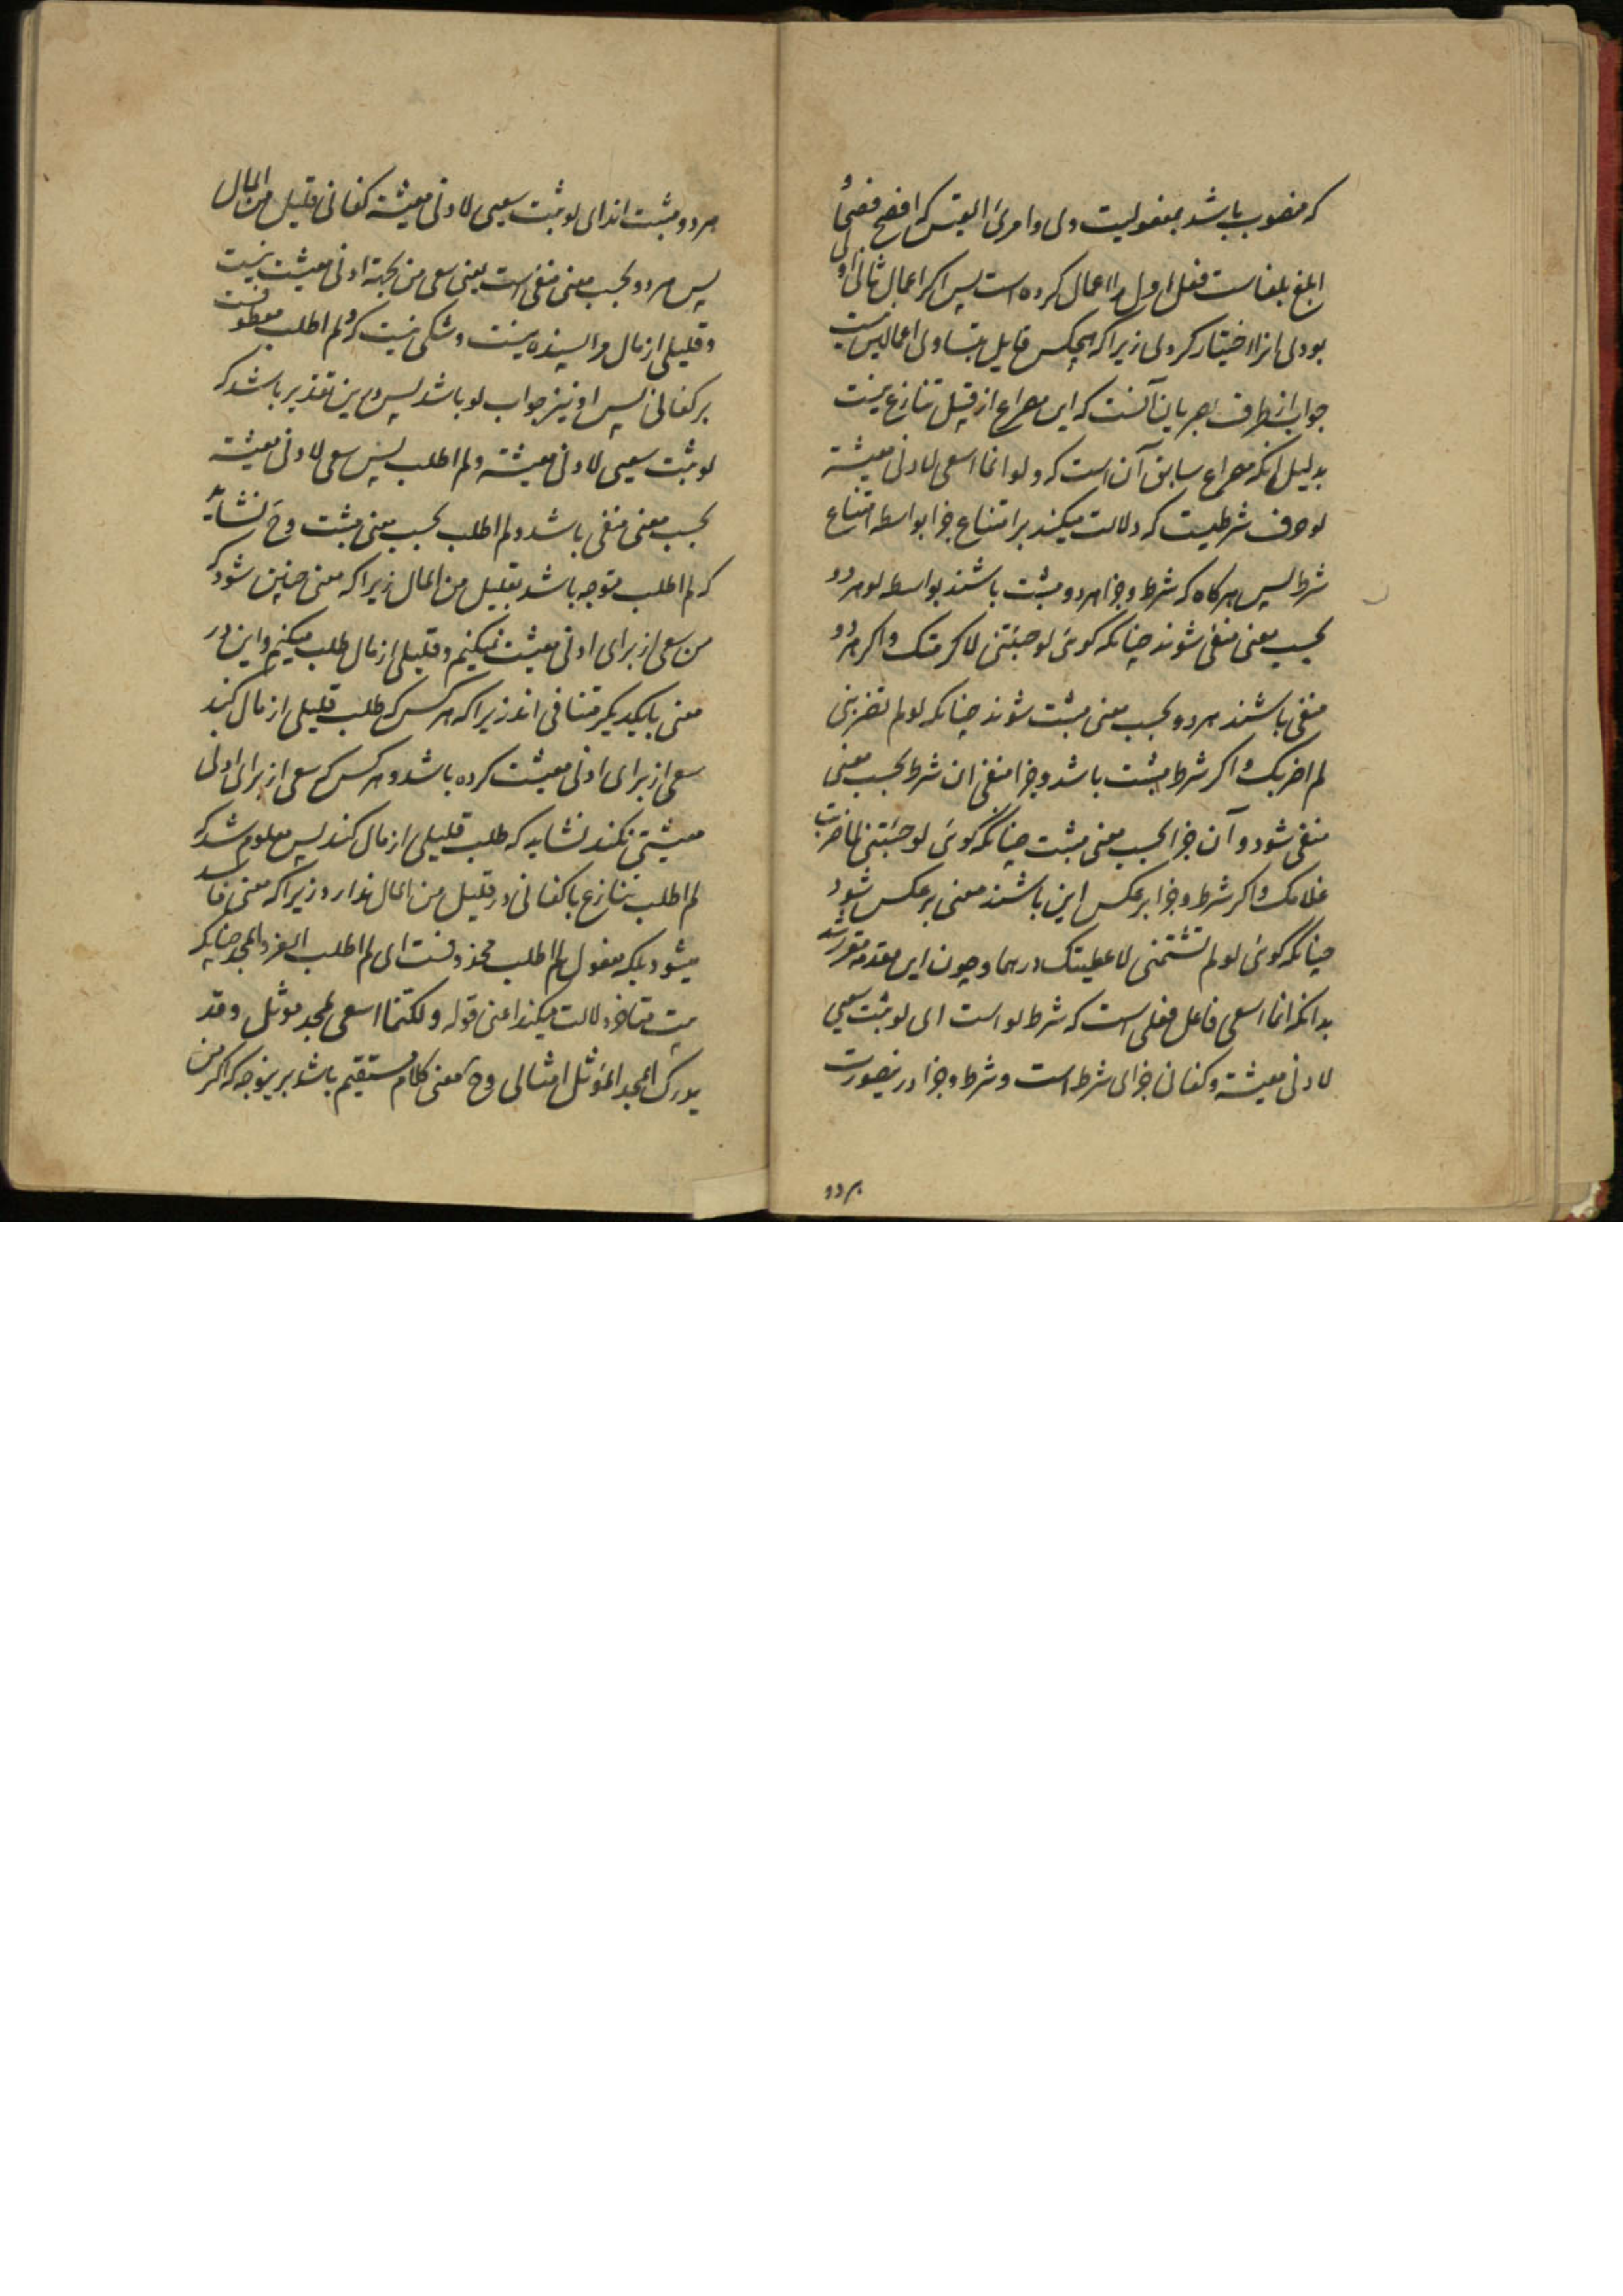 که منصوب باشد بمفعولیت وی و امرئ القیس که افصح فصحا و
ابلغ بلغاست فعل اول را اعمال کرده است پس اگر اعمال ثانی اولی
بودی انرا اختیار کردی زیرا که هیچکس قایل بتساوی اعمالین نیست
جواب از طرف بصریان آنست که این مصراع از قبیل تنازع نیست
بدلیل انکه مصراع سابق آن است که و لو انما اسعی لادنی معیشة
لو حرف شرطیست که دلالت میکند بر امتناع جزا بواسطه امتناع
شرط پس هرکاه که شرط و جزا هر دو مثبت باشند بواسطه لو هر دو
بحسب معنی منفی شوند چنانکه گوئی لو جئتنی لاکرمتک و اکر هر دو
منفی باشند هر دو بحسب معنی مثبت شوند چنانکه لو لم تضربنی
لم اضربک و اکر شرط مثبت باشد و جزا منفی ان شرط بحسب معنی
منفی شود و آن جزا بحسب معنی مثبت چنانکه گوئی لو جئتنی لما ضربت
غلامک و اکر شرط و جزا برعکس این باشند معنی برعکس شود
چنانکه گوئی لو لم تشتمنی لاعطیتک درهما و چون این مقدمه مقرر شد
بدانکه انما اسعی فاعل فعلی است که شرط لو است ای لو ثبت سعیی
لادنی معیشة و کفانی جزای شرط است و شرط و جزا درینصورت
هر دو
هر دو مثبت اند ای لو ثبت سعیی لادنی معیشة کفانی قلیل من المال
پس هر دو بحسب معنی منفی است یعنی سعی من بجهة ادنی معیشت نیست
و قلیلی از مال مرا بسنده نیست و شکی نیست که و لم اطلب معطوفست
بر کفانی پس او نیز جواب لو باشد پس درین تقدیر باشد که
لو ثبت سعیی لادنی معیشة و لم اطلب پس سعی لادنی معیشة
بحسب معنی منفی باشد و لم اطلب بحسب معنی مثبت و ح نشاید
که لم اطلب متوجه باشد بقلیل من المال زیرا که معنی چنین شود که
من سعی از برای ادنی معیشت نمیکنیم و قلیلی از مال طلب میکنیم و این در
معنی بایکدیکر متنافی اند زیرا که هر کس که طلب قلیلی از مال کند
سعی از برای ادنی معیشت کرده باشد و هر کس که سعی از برای ادنی
معیشتی نکند نشاید که طلب قلیلی از مال کند پس معلوم شد که
لم اطلب تنازع با کفانی در قلیل من المال ندارد زیرا که معنی فاسد
میشود بلکه مفعول لم اطلب محذوفست ای لم اطلب العز و المجد چنانکه
بیت متاخر دلالت میکند اعنی قوله و لکنما اسعی لمجد موثل و قد
یدرک المجد الموثل امثالی و ح معنی کلام مستقیم باشد برینوجه که اکر من